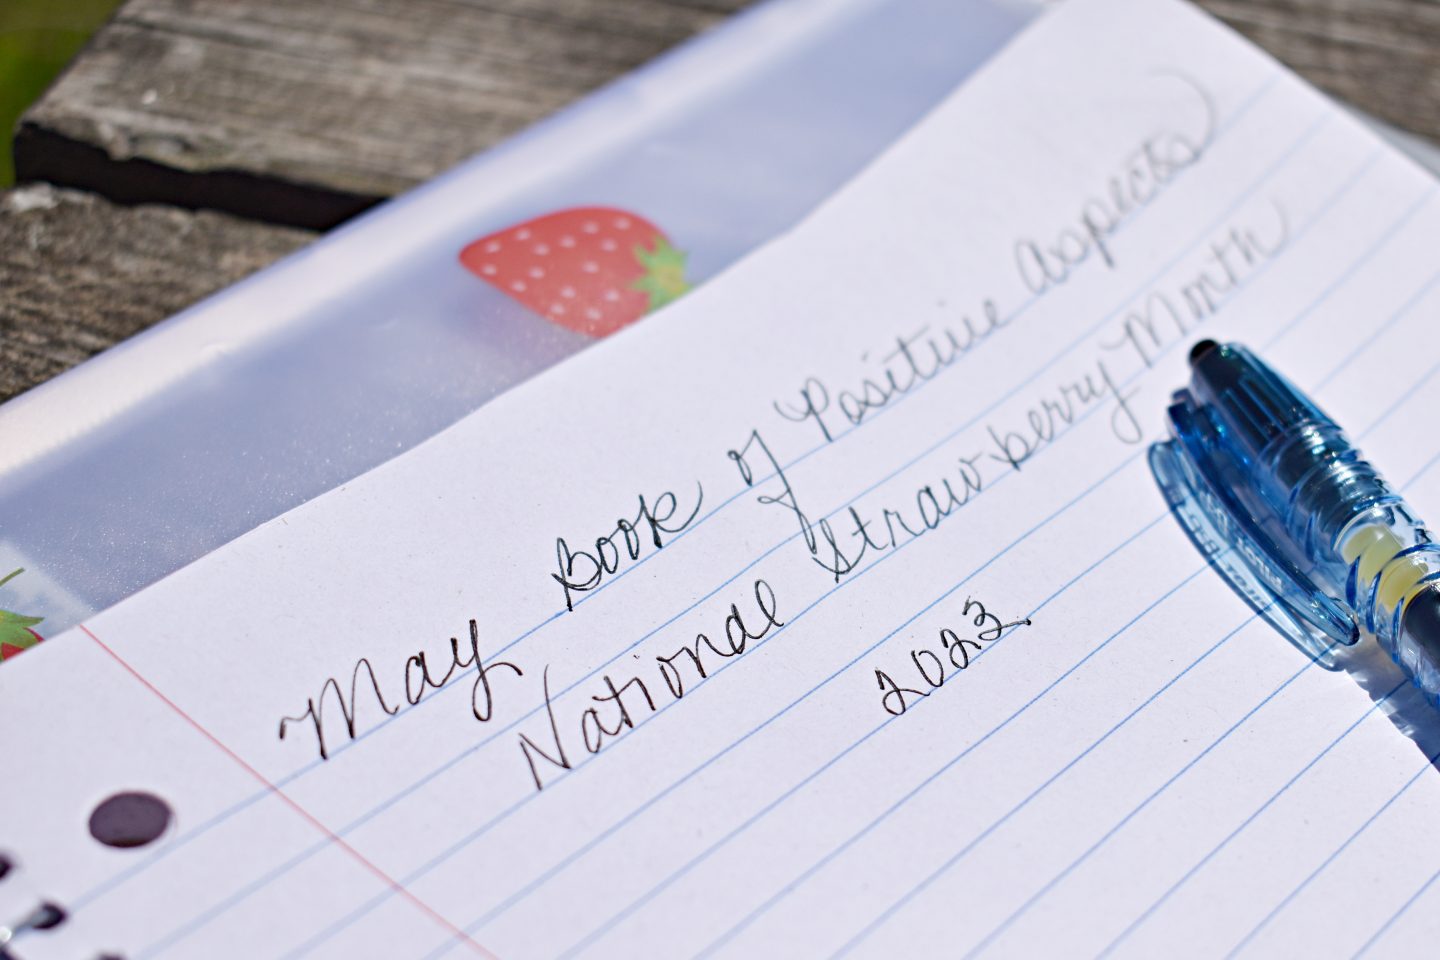 May Book of Positive Aspects
National Strawberry Month
2023